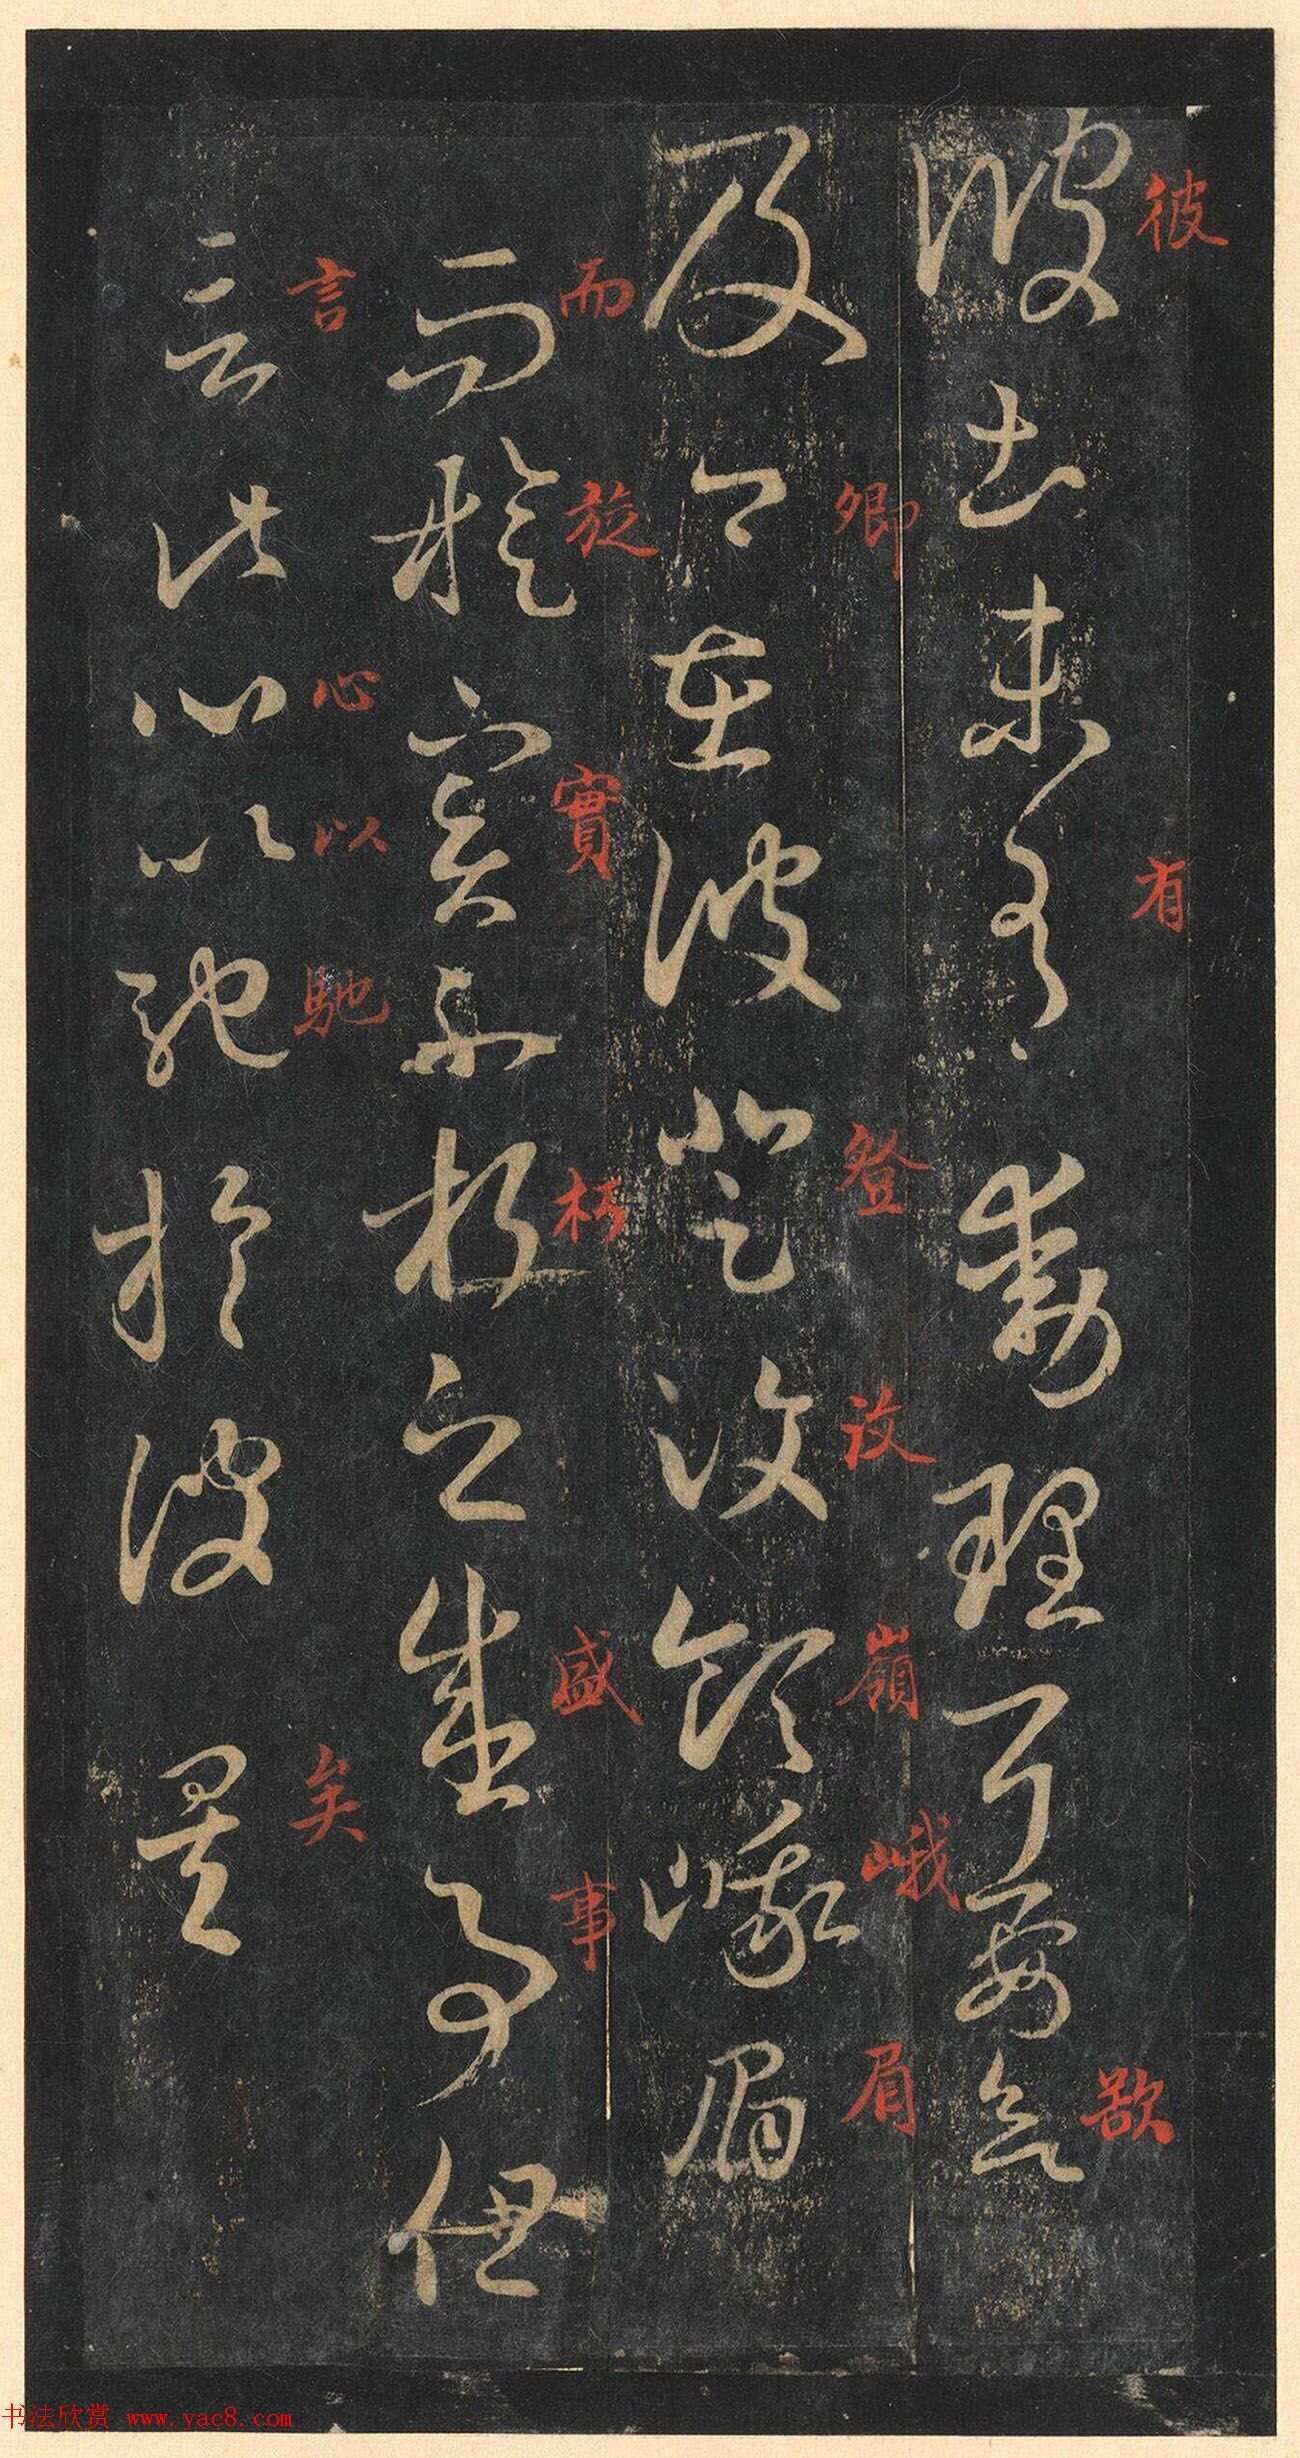 彼土未有動理耳要欲
彼有欲
及卿在彼登汶領峨眉
卿登汶嶺峨眉
而旋實不朽之盛事但
而旋實朽盛事
言此心以馳於彼矣
言心以馳矣
书法欣赏 www.yac8.com